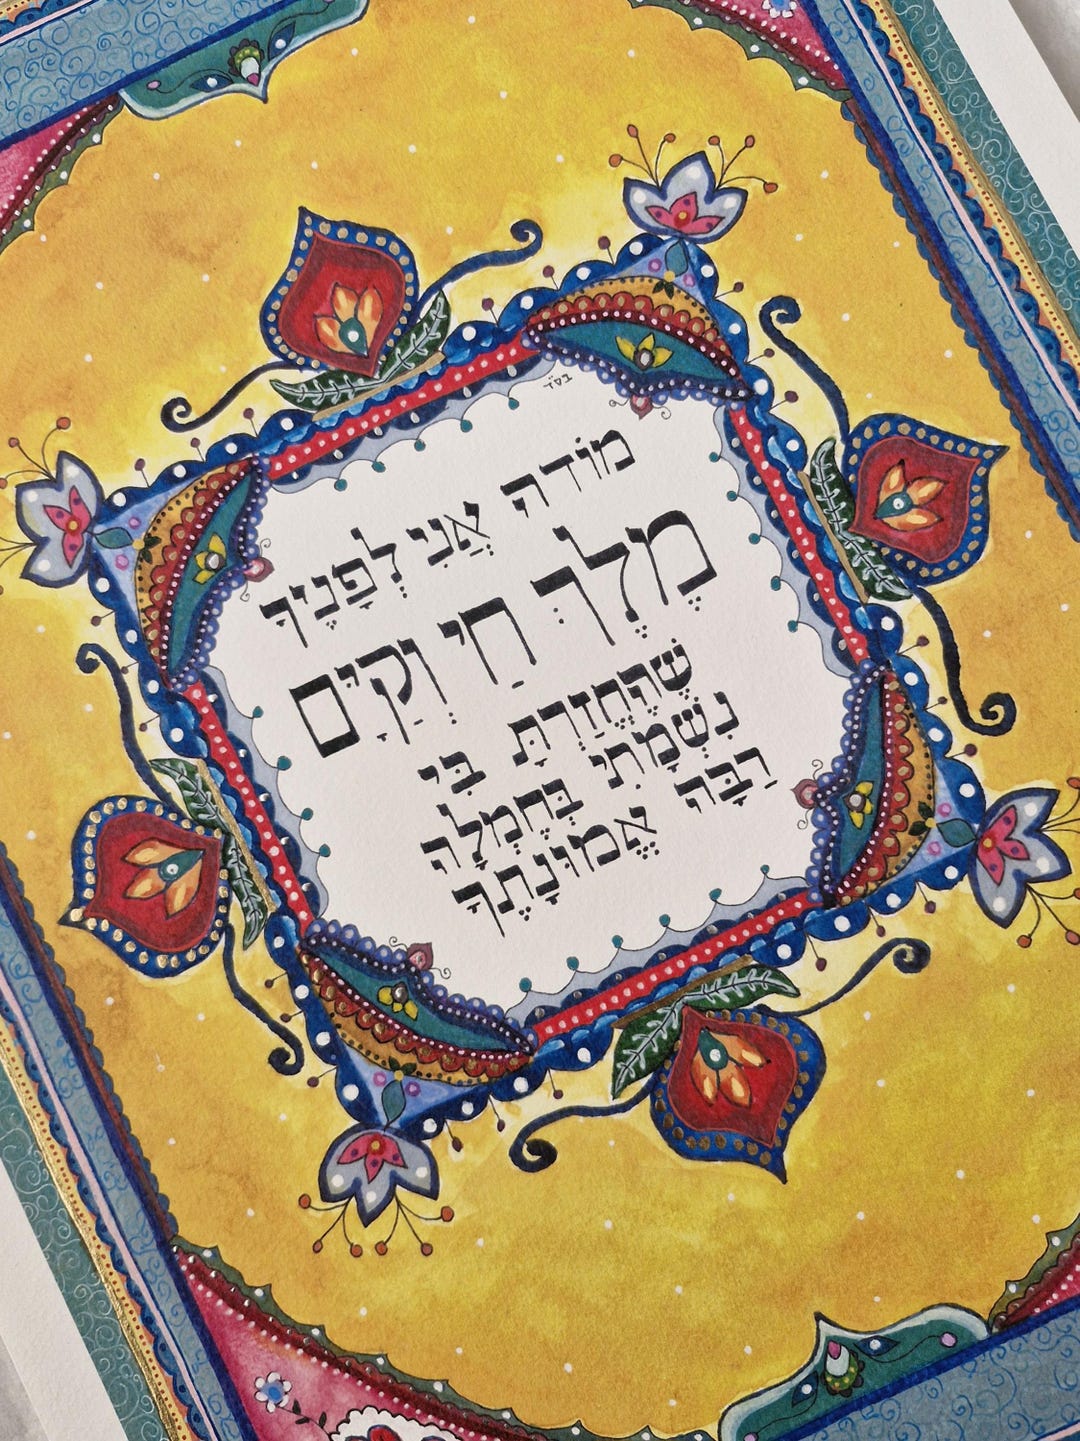 בס"ד
מוֹדה אֲנִי לְפָנֶיךָ
מֶלֶךְ חַי וְקַיָּם
שֶׁהֶחֱזַרְתָּ בִּי
נִשְׁמָתִי בְּחֶמְלָה
רַבָּה אֱמוּנָתֶךָ